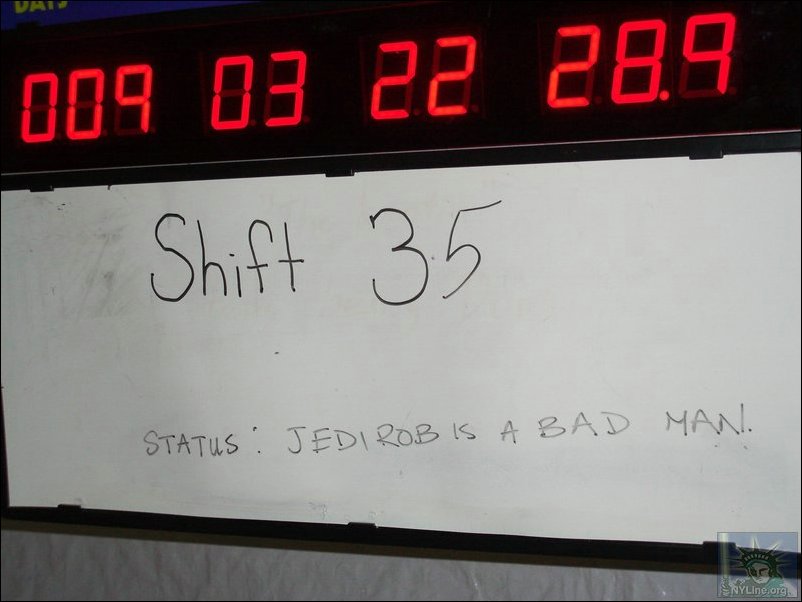 DAYS
009 03 22 28.9
Shift 35
STATUS: JEDIROB IS A BAD MAN.
NYLine.org